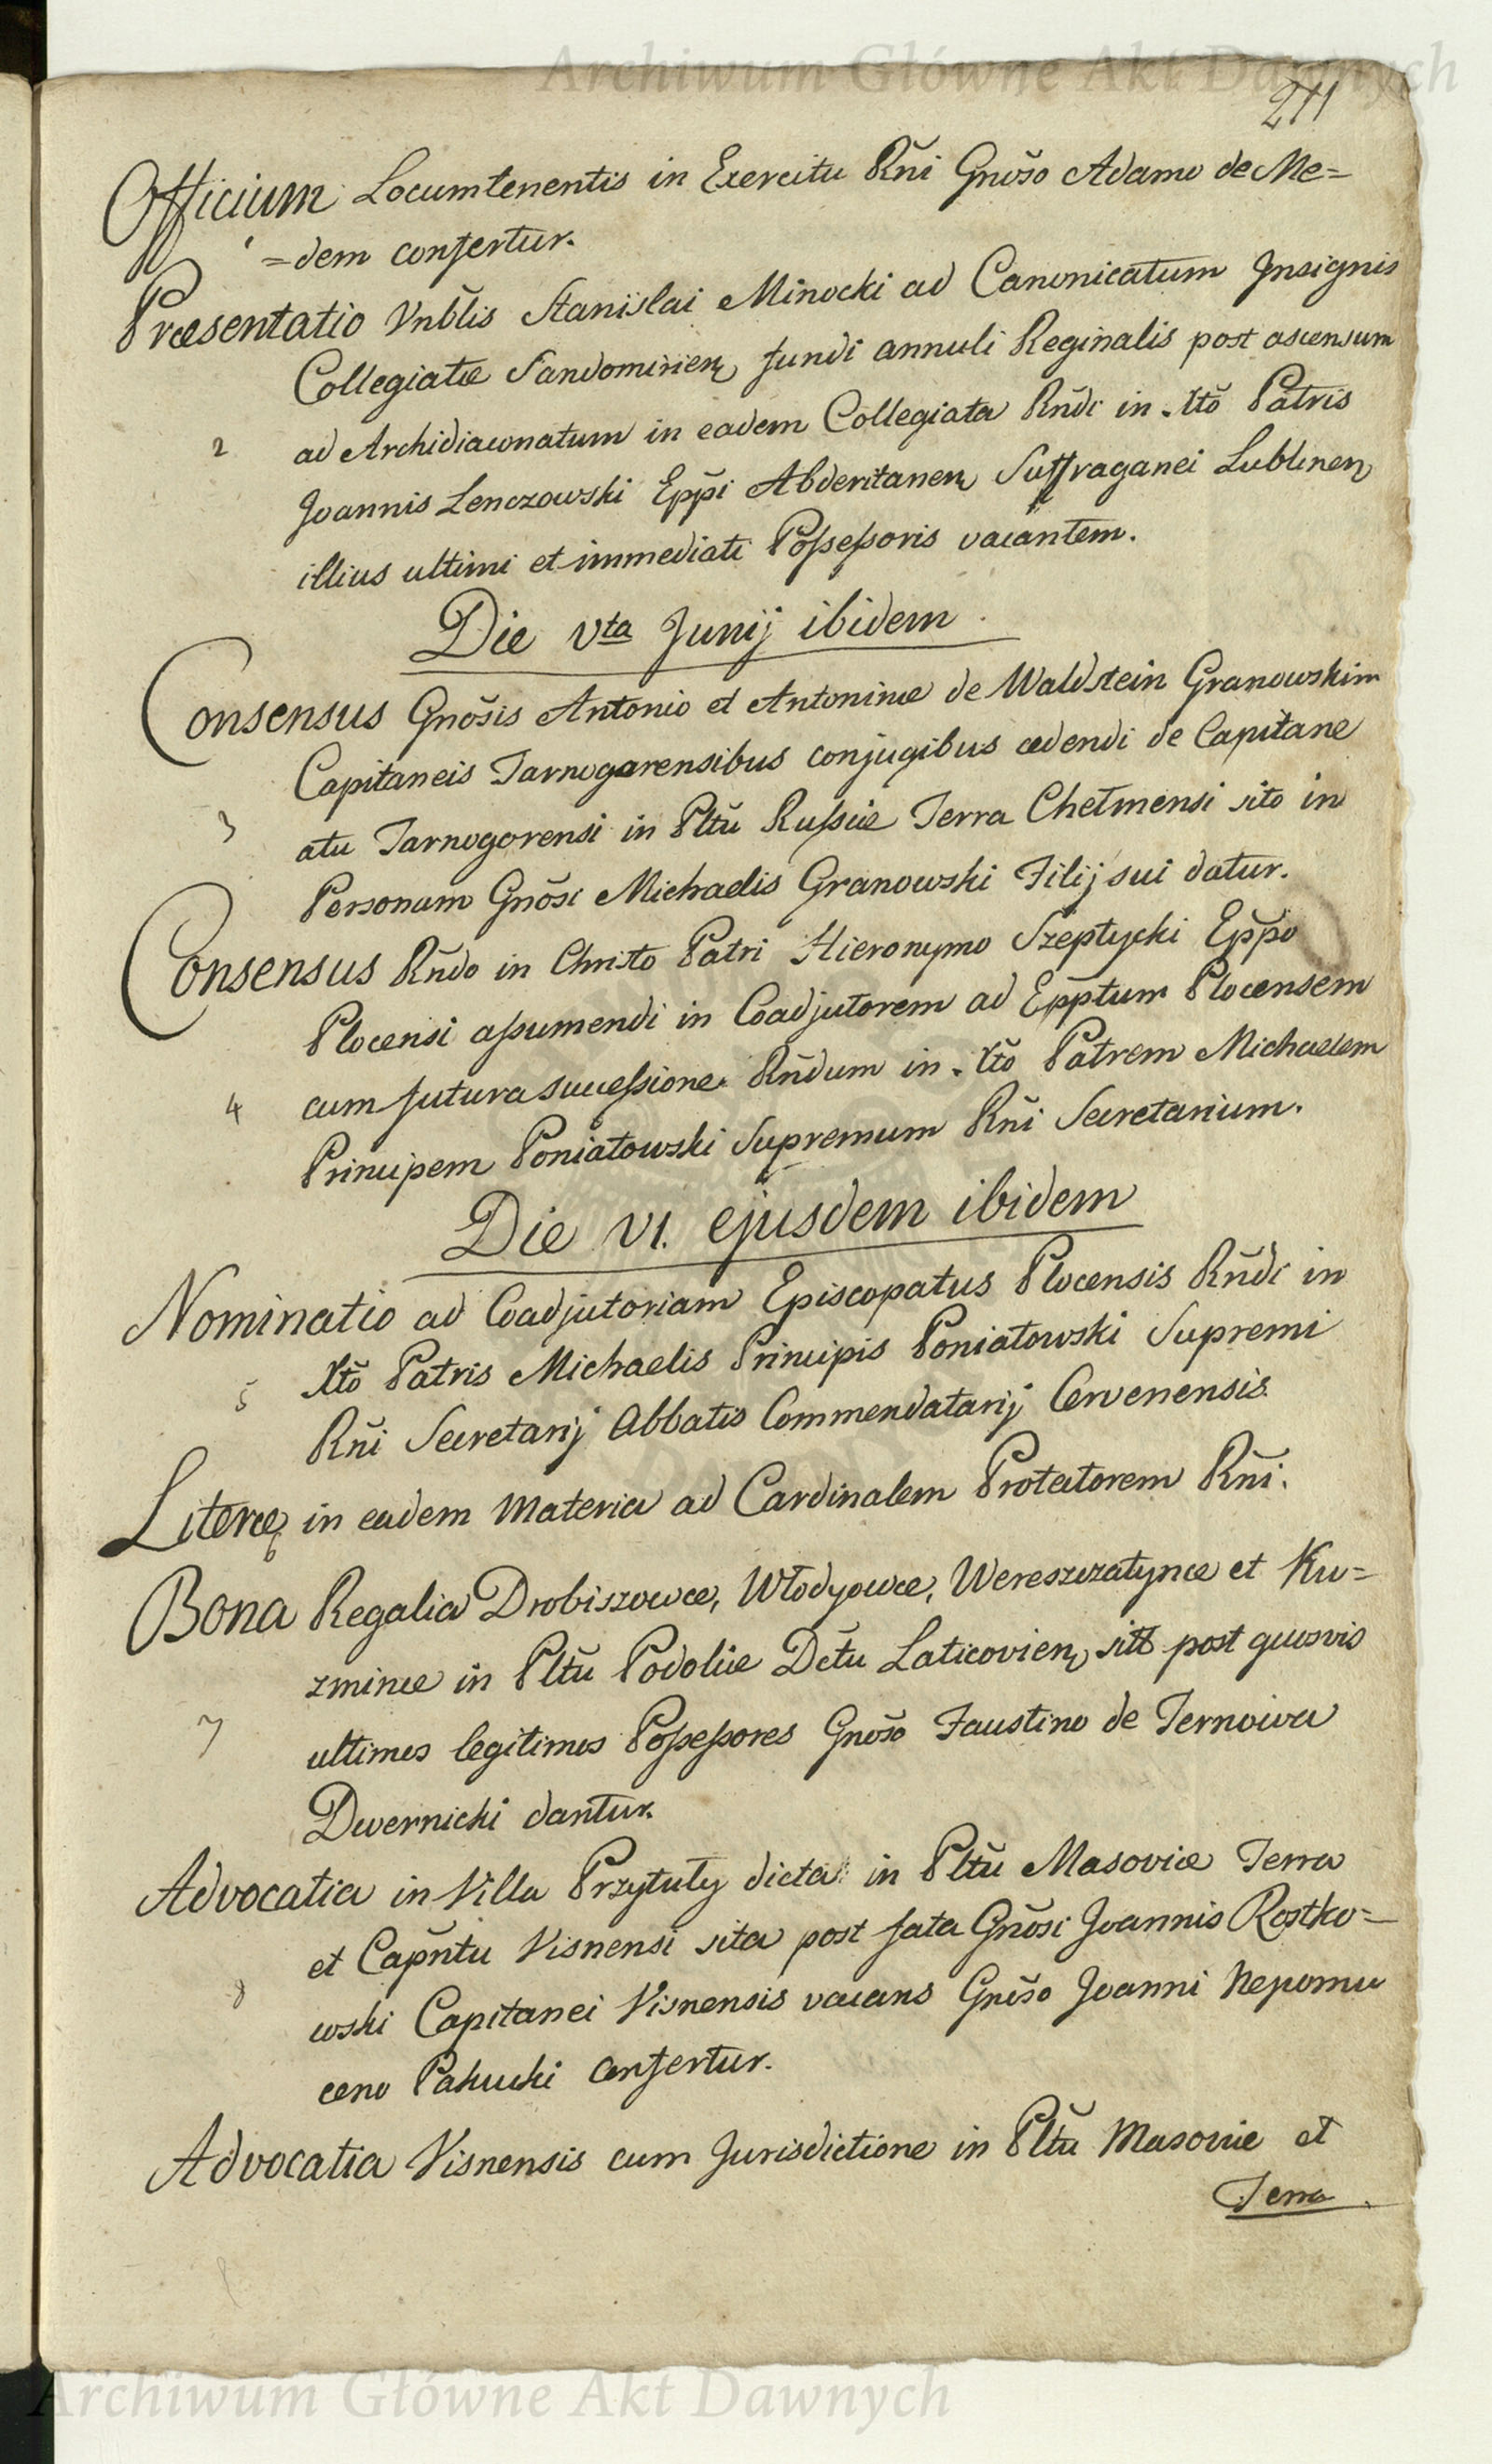 Archiwum Główne Akt Dawnych
211
Officium Locumtenentis in Exercitu Rñi Gnõso Adamo de Me=
1 =dem confertur.
Præsentatio Vnb̃lis Stanislai Minocki ad Canonicatum Insignis
Collegiatæ Sandomirien, fundi annuli Reginalis post ascensum
2 ad Archidiaconatum in eadem Collegiata Rñdi in Xtõ Patris
Joannis Lenczowski Epp̃i Abderitanen, Suffraganei Lublinen,
illius ultimi et immediati Possessoris vacantem.
Die Vta Junij ibidem.
Consensus Gnõsis Antonio et Antoninæ de Waldstein Granowskim
Capitaneis Tarnogorensibus conjugibus cedendi de Capitane
3 atu Tarnogorensi in Pltũ Russiæ Terra Chełmensi sito in
Personam Gnõsi Michaelis Granowski Filij sui datur.
Consensus Rñdo in Christo Patri Hieronymo Szeptycki Epp̃o
Plocensi assumendi in Coadjutorem ad Epp̃tum Plocensem
4 cum futura successione Rñdum in Xtõ Patrem Michaelem
Principem Poniatowski Supremum Rñi Secretarium.
Die VI. ejusdem ibidem
Nominatio ad Coadjutoriam Episcopatus Plocensis Rñdi in
5 Xtõ Patris Michaelis Principis Poniatowski Supremi
Rñi Secretarij Abbatis Commendatarij Cervenensis.
Literæ in eadem materia ad Cardinalem Protectorem Rñi.
6
Bona Regalia Drobiszowce, Włodyowce, Wereszczatynce et Ku=
zmince in Pltũ Podoliæ Dc̃tu Laticovien, sitt post quosvis
7 ultimos legitimos Possessores Gnõso Faustino de Ternoiva
Dwernicki dantur.
Advocatia in Villa Przytuły dicta in Pltũ Masoviæ Terra
et Capñtu Visnensi sita post fata Gnõsi Joannis Rostko=
8 wski Capitanei Visnensis vacans Gnõso Joanni Nepomu
ceno Pakucki confertur.
Advocatia Visnensis cum Jurisdictione in Pltũ Masoviæ et
Terra
Archiwum Główne Akt Dawnych